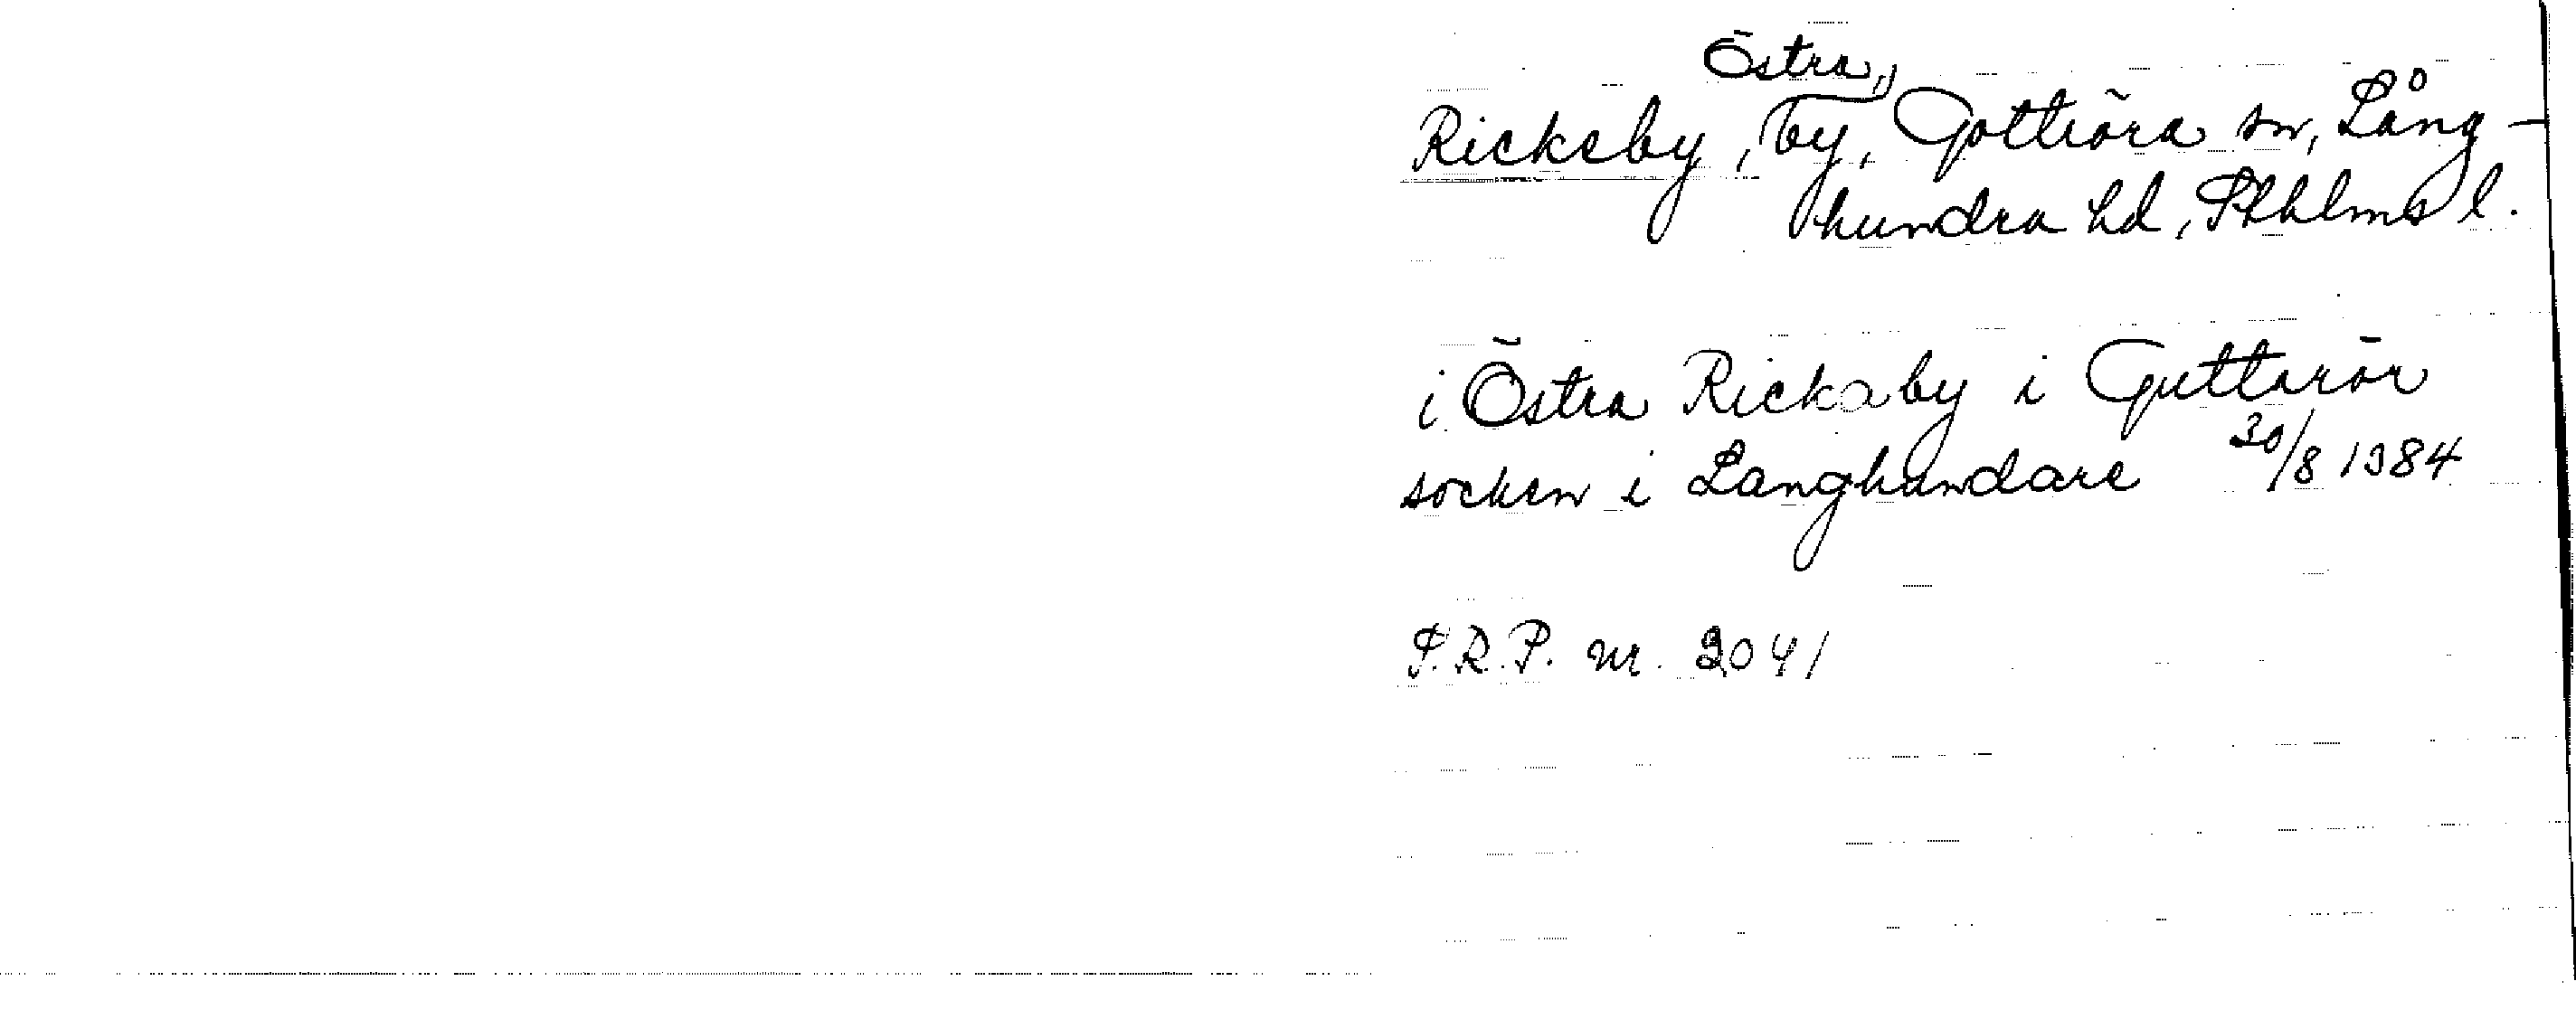 Rickeby, Östra, by, Gottröra sn, Lång-
hundra hd, Sthlms l.
i Östra Rickaby i Guttarör
socken i Langhundare 30/8 1384
S.R.P. nr. 2041